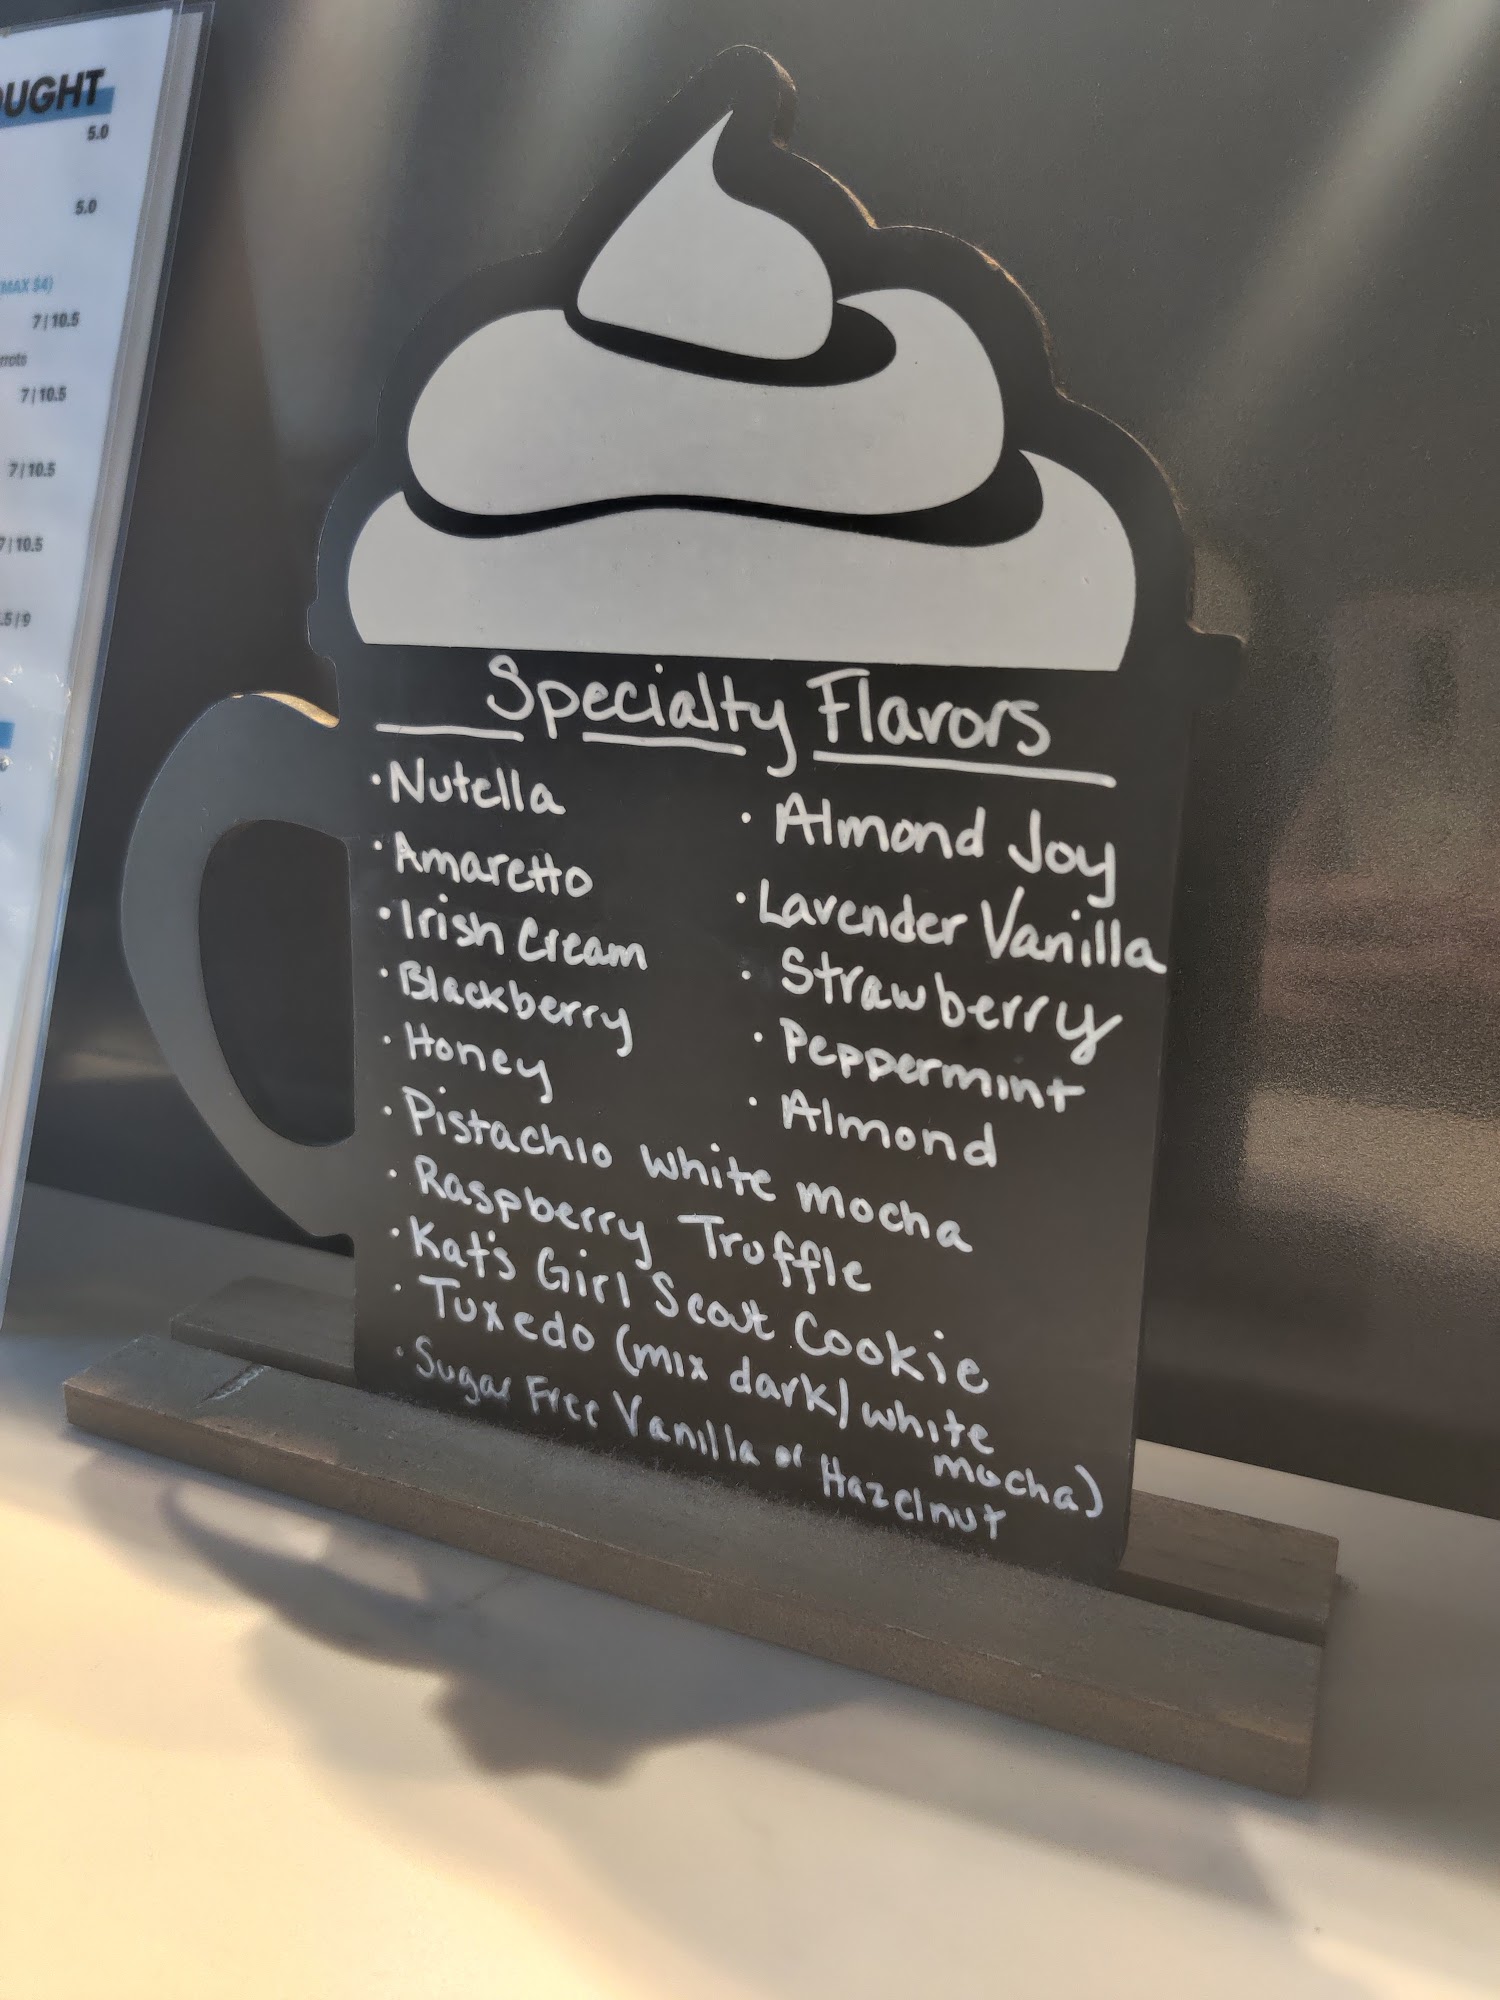 OUGHT
5.0
5.0
(MAX $4)
7|10.5
7|10.5
7|10.5
7|10.5
.5|9
Specialty Flavors
· Nutella
· Amaretto
· Irish Cream
· Blackberry
· Honey
· Almond Joy
· Lavender Vanilla
· Strawberry
· Peppermint
· Almond
· Pistachio white mocha
· Raspberry Truffle
· Kat's Girl Scout Cookie
· Tuxedo (mix dark/white
mocha)
· Sugar Free Vanilla or Hazelnut